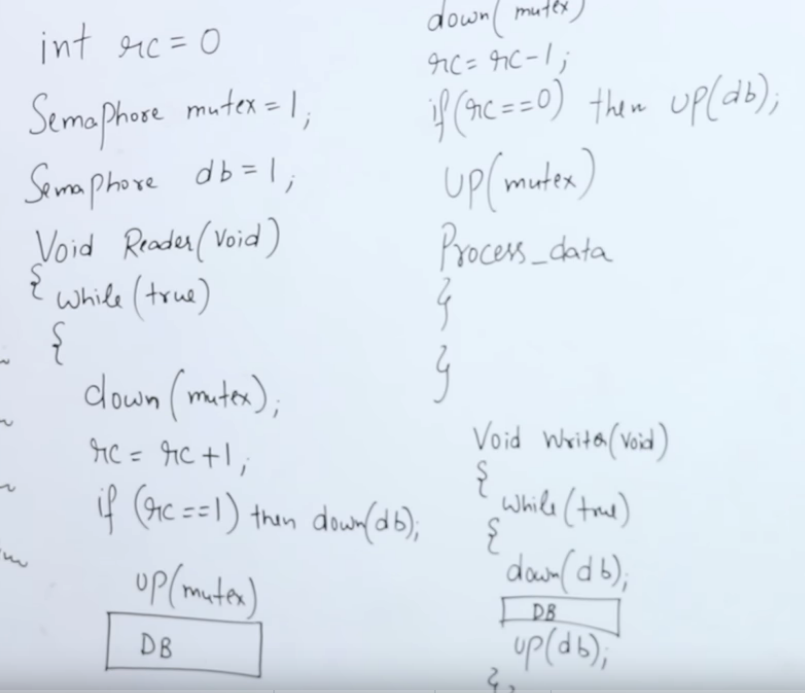 int rc = 0
Semaphore mutex = 1;
Semaphore db = 1;
Void Reader(Void)
{ while(true)
{
down(mutex);
rc = rc +1;
if (rc==1) then down(db);
up(mutex)
DB
down(mutex)
rc = rc-1;
if(rc==0) then up(db);
UP(mutex)
Process_data
}
}
Void Writer(Void)
{
while(true)
{
down(db);
DB
up(db);
}